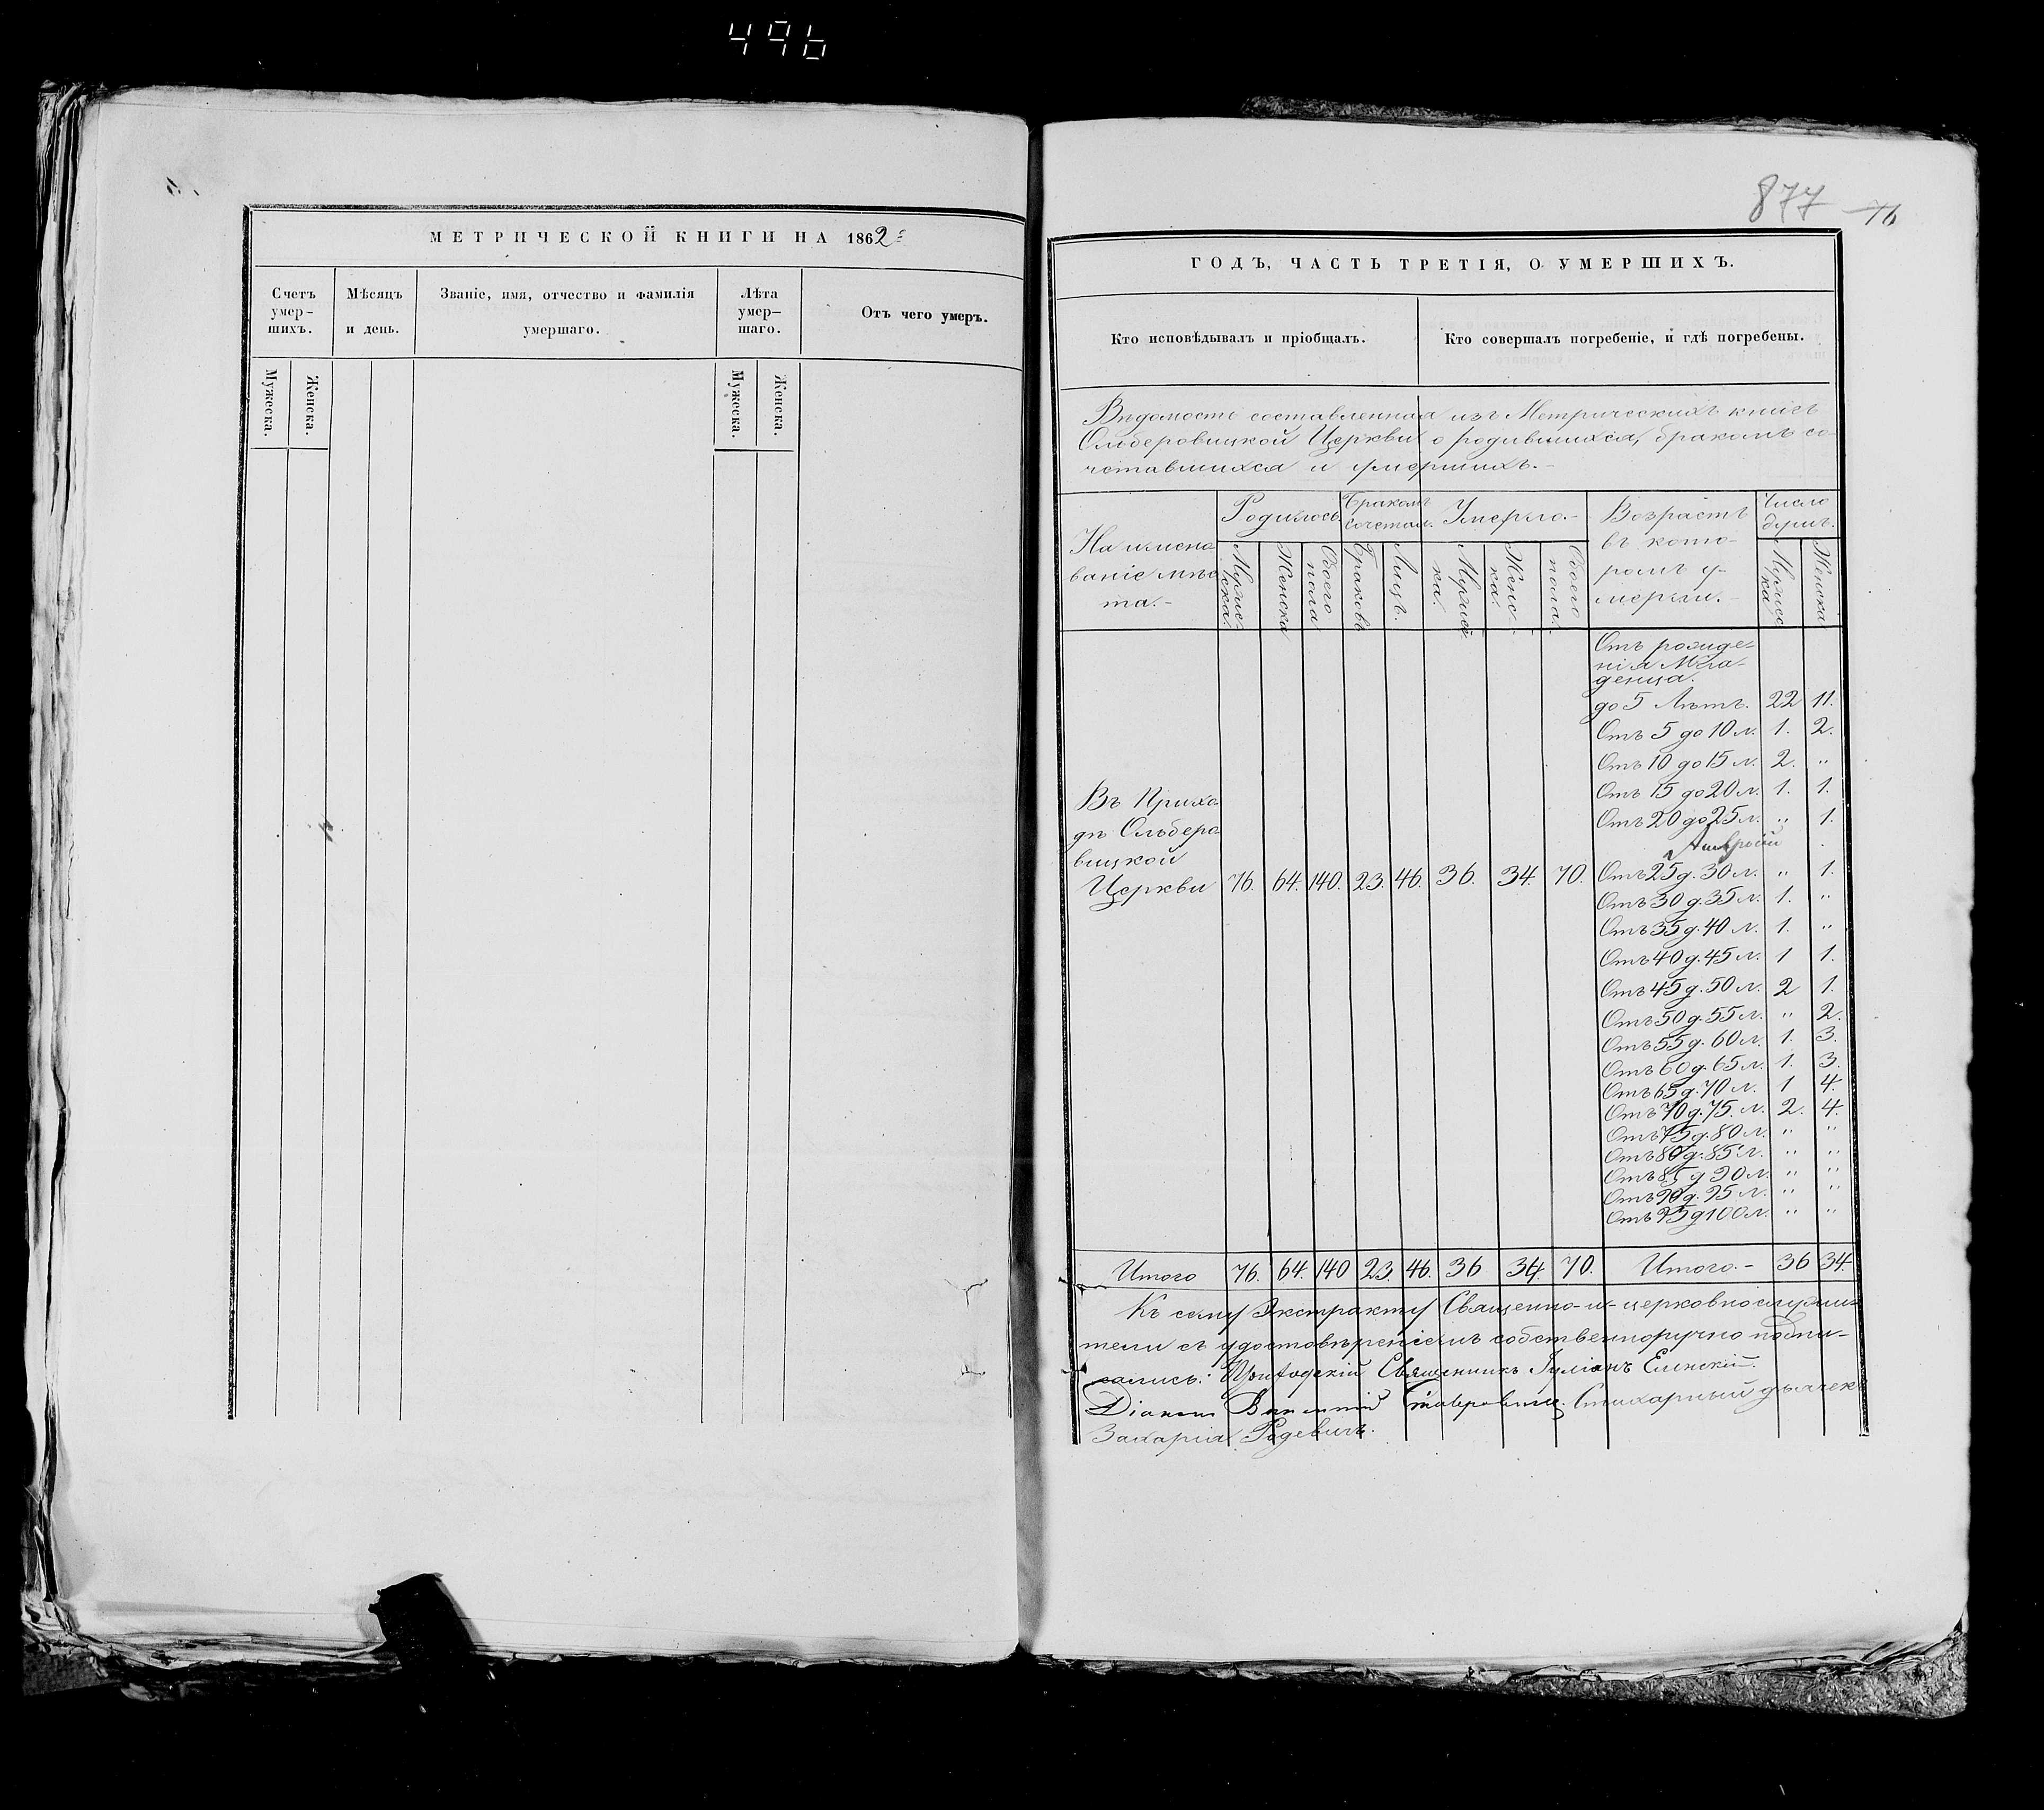 496
МЕТРИЧЕСКОЙ КНИГИ НА 1862
Счетъ умер-шихъ.
Мѣсяцъ и день.
Званіе, имя, отчество и фамилія умершаго.
Лѣта умер-шаго.
Отъ чего умеръ.
Мужеска.
Женска.
Мужеска.
Женска.
877 76
ГОДЪ, ЧАСТЬ ТРЕТІЯ, О УМЕРШИХЪ.
Кто исповѣдывалъ и пріобщалъ.
Кто совершалъ погребеніе, и гдѣ погребены.
Вѣдомость составленная изъ Метрическихъ книгъ
Ольберовицкой Церкви о родившихся, бракомъ со-
четавшихся и умершихъ.-
Наимено-
ваніе мѣс-
та.-
Родилось.
Бракомъ сочетал.
Умерло.-
Возрастъ
въ кото-
ромъ у-
мерли.-
Число душъ.
Мужес-ска.
Женска
Обоего пола
Браковъ
Лицъ.
Мужес-ка.
Женс-ка.
Обоего пола.
Мужес-ка
Женска
Отъ рожде-
нія Мла-
денца.
до 5 Лѣтъ. 22 11.
Отъ 5 до 10 л. 1. 2.
Отъ 10 до 15 л. 2. "
Отъ 15 до 20 л. 1. 1.
Отъ 20 до 25 л. " 1.
Въ Прихо-
дѣ Ольберо-
вицкой
Церкви 76. 64. 140. 23. 46. 36. 34. 70.
Отъ 25 д. 30 л. " 1.
Отъ 30 д. 35 л. 1. "
Отъ 35 д. 40 л. 1. "
Отъ 40 д. 45 л. 1 1.
Отъ 45 д. 50 л. 2 1.
Отъ 50 д. 55 л. " 2.
Отъ 55 д. 60 л. 1. 3.
Отъ 60 д. 65 л. 1. 3.
Отъ 65 д. 70 л. 1 4.
Отъ 70 д. 75. л. 2. 4.
Отъ 75 д. 80 л. " "
Отъ 80 д. 85 л. " "
Отъ 85 д 90 л. " "
Отъ 90 д. 95 л. " "
Отъ 95 д 100 л. " "
Итого 76. 64. 140 23. 46. 36 34. 70. Итого.- 36 34.
Къ сему Экстракту Священно-и-церковнослужи-
тели съ удостовѣреніемъ собственноручно подпи-
сались: Приходскій Священникъ Іуліанъ Еленскій.
Діаконъ Ставровичъ. Стихарный дьячекъ
Захарія Родевичъ.